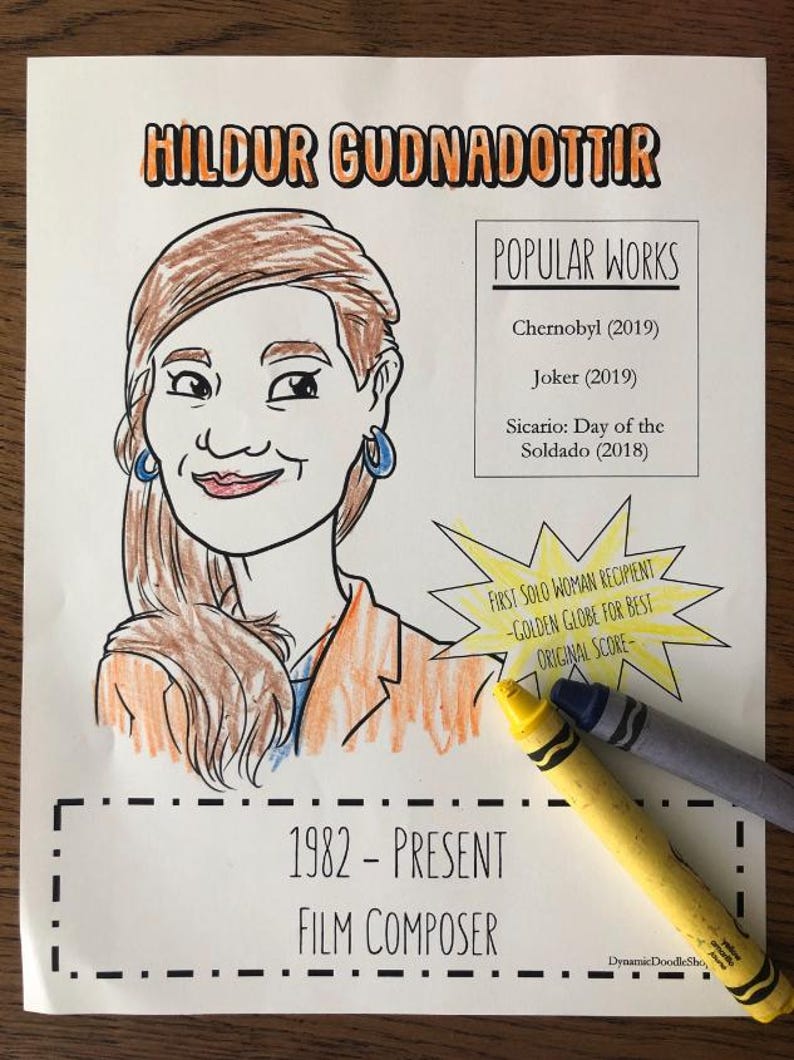 HILDUR GUDNADOTTIR
POPULAR WORKS
Chernobyl (2019)
Joker (2019)
Sicario: Day of the
Soldado (2018)
FIRST SOLO WOMAN RECIPIENT
-GOLDEN GLOBE FOR BEST
ORIGINAL SCORE-
1982 - PRESENT
FILM COMPOSER
DynamicDoodleSho
yellow
amarillo
jaune